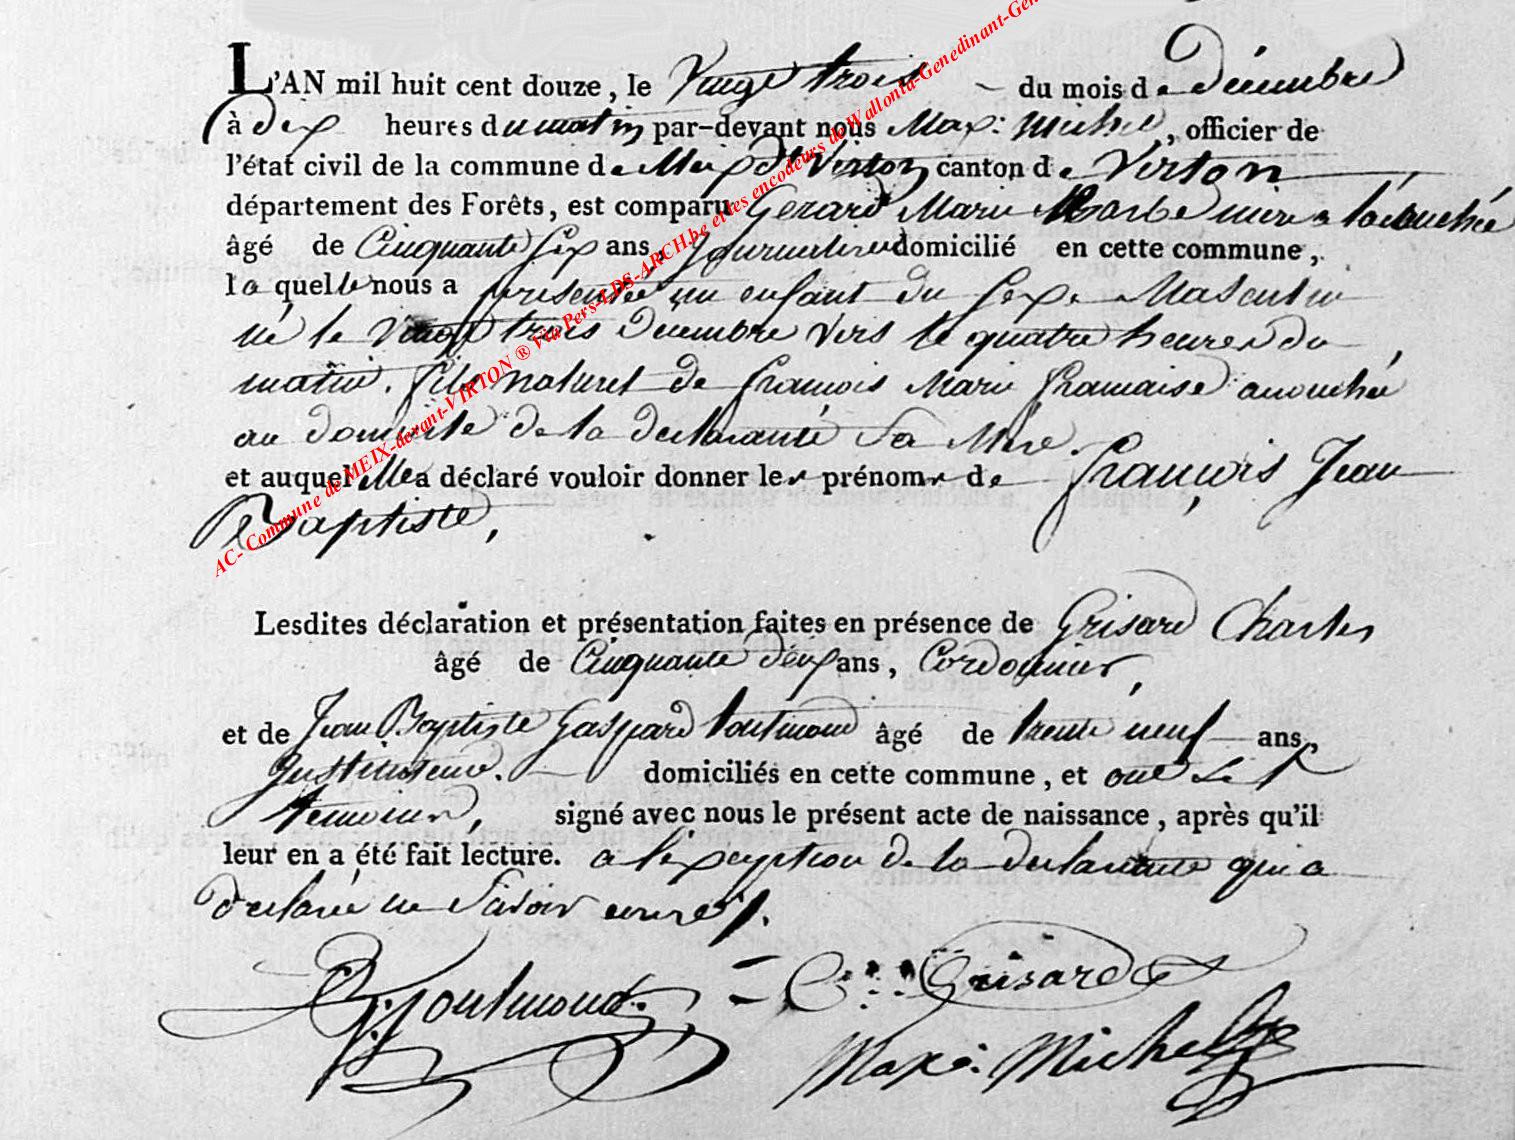 L'AN mil huit cent douze, le Vingt trois du mois de décembre
à dix heures du matin par-devant nous Max: Michel, officier de
l'état civil de la commune de Meix dt Virton canton de Virton
département des Forêts, est comparu Gerard Marie Barbe mere a l'acouchée
âgé de Cinquante six ans, Journaliere domicilié en cette commune,
laquelle nous a presentée un enfant du sexe Masculin
né le Vingt trois décembre vers le quatre heures du
matin. fils naturel de francois Marie francaise acouchée
au domicile de la declarante Sa Mere.
et auquel elle a déclaré vouloir donner les prénoms de françois Jean
Baptiste,
Lesdites déclaration et présentation faites en présence de Grisard Charles
âgé de Cinquante deux ans, Cordonnier,
et de Jean Baptiste Gaspard toutmond âgé de trente neuf ans,
Justituteur. domiciliés en cette commune, et ont les
temoins, signé avec nous le présent acte de naissance, après qu'il
leur en a été fait lecture. a l'exception de la declarante qui a
declarée ne Savoir
toutmond
Grisard
Maxe: Michel
AC- Commune de MEIX-devant-VIRTON ® Via Pers-LDS-ARCH.be et les encodeurs de Wallonia-Genedinant-Gen